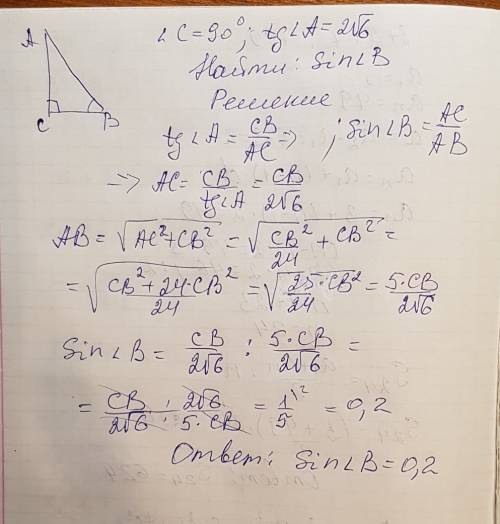 ∠C=90°; tg∠A=2√6
Найти: Sin∠B
Решение
A
C
B
tg∠A = CB/AC => ; Sin∠B = AC/AB
=> AC = CB/tg∠A = CB/2√6
AB = √(AC²+CB²) = √(CB²/24 + CB²) =
= √((CB²+24·CB²)/24) = √(25·CB²/24) = 5·CB/2√6
Sin∠B = CB/2√6 : 5·CB/2√6 =
= CB · 2√6/2√6 · 5·CB = 1\²/5 = 0,2
Ответ: Sin∠B=0,2